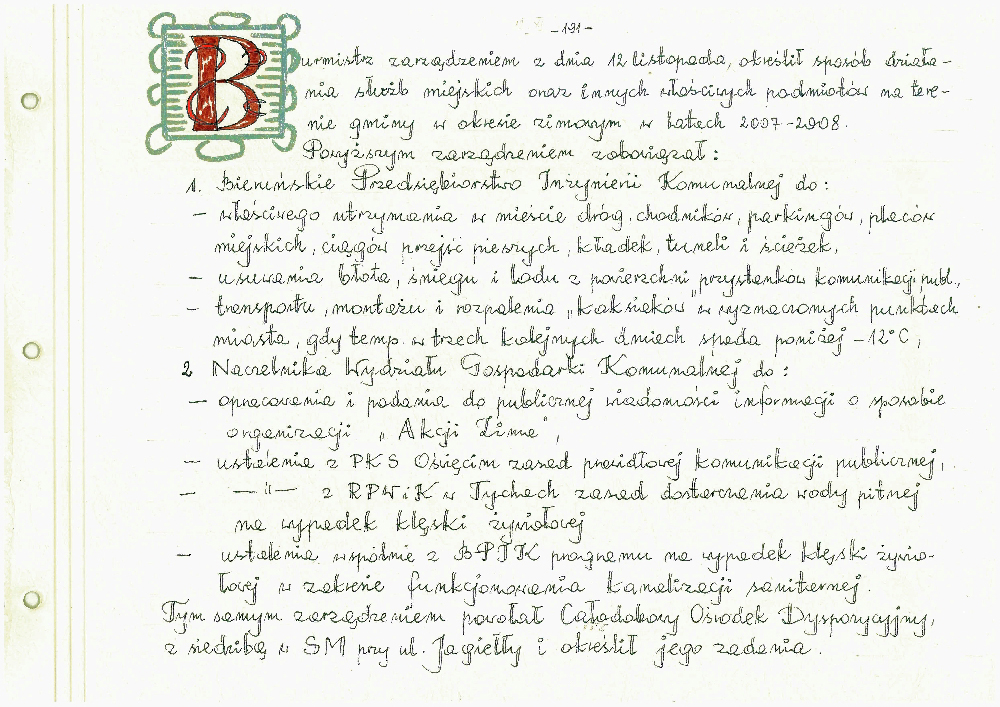 - 191 -
Burmistrz zarządzeniem z dnia 12 listopada, określił sposób działa-
nia służb miejskich oraz innych właściwych podmiotów na tere-
nie gminy w okresie zimowym w latach 2007-2008.
Powyższym zarządzeniem zobowiązał:
1. Bieruńskie Przedsiębiorstwo Inżynierii Komunalnej do:
- właściwego utrzymania w mieście dróg, chodników, parkingów, placów
miejskich, ciągów przejść pieszych, kładek, tuneli i ścieżek,
- usuwania błota, śniegu i lodu z powierzchni przystanków komunikacji publ.,
- transportu, montażu i rozpalenia „koksiaków" w wyznaczonych punktach
miasta, gdy temp. w trzech kolejnych dniach spada poniżej -12°C,
2 Naczelnika Wydziału Gospodarki Komunalnej do:
- opracowania i podania do publicznej wiadomości informacji o sposobie
organizacji „Akcji Zima",
- ustalenia z PKS Oświęcim zasad prawidłowej komunikacji publicznej,
- —"— z RPWiK w Tychach zasad dostarczania wody pitnej
na wypadek klęski żywiołowej
- ustalenia wspólnie z BPIK programu na wypadek klęski żywio-
łowej w zakresie funkcjonowania kanalizacji sanitarnej.
Tym samym zarządzeniem powołał Całodobowy Ośrodek Dyspozycyjny,
z siedzibą w SM przy ul. Jagiełły i określił jego zadania.